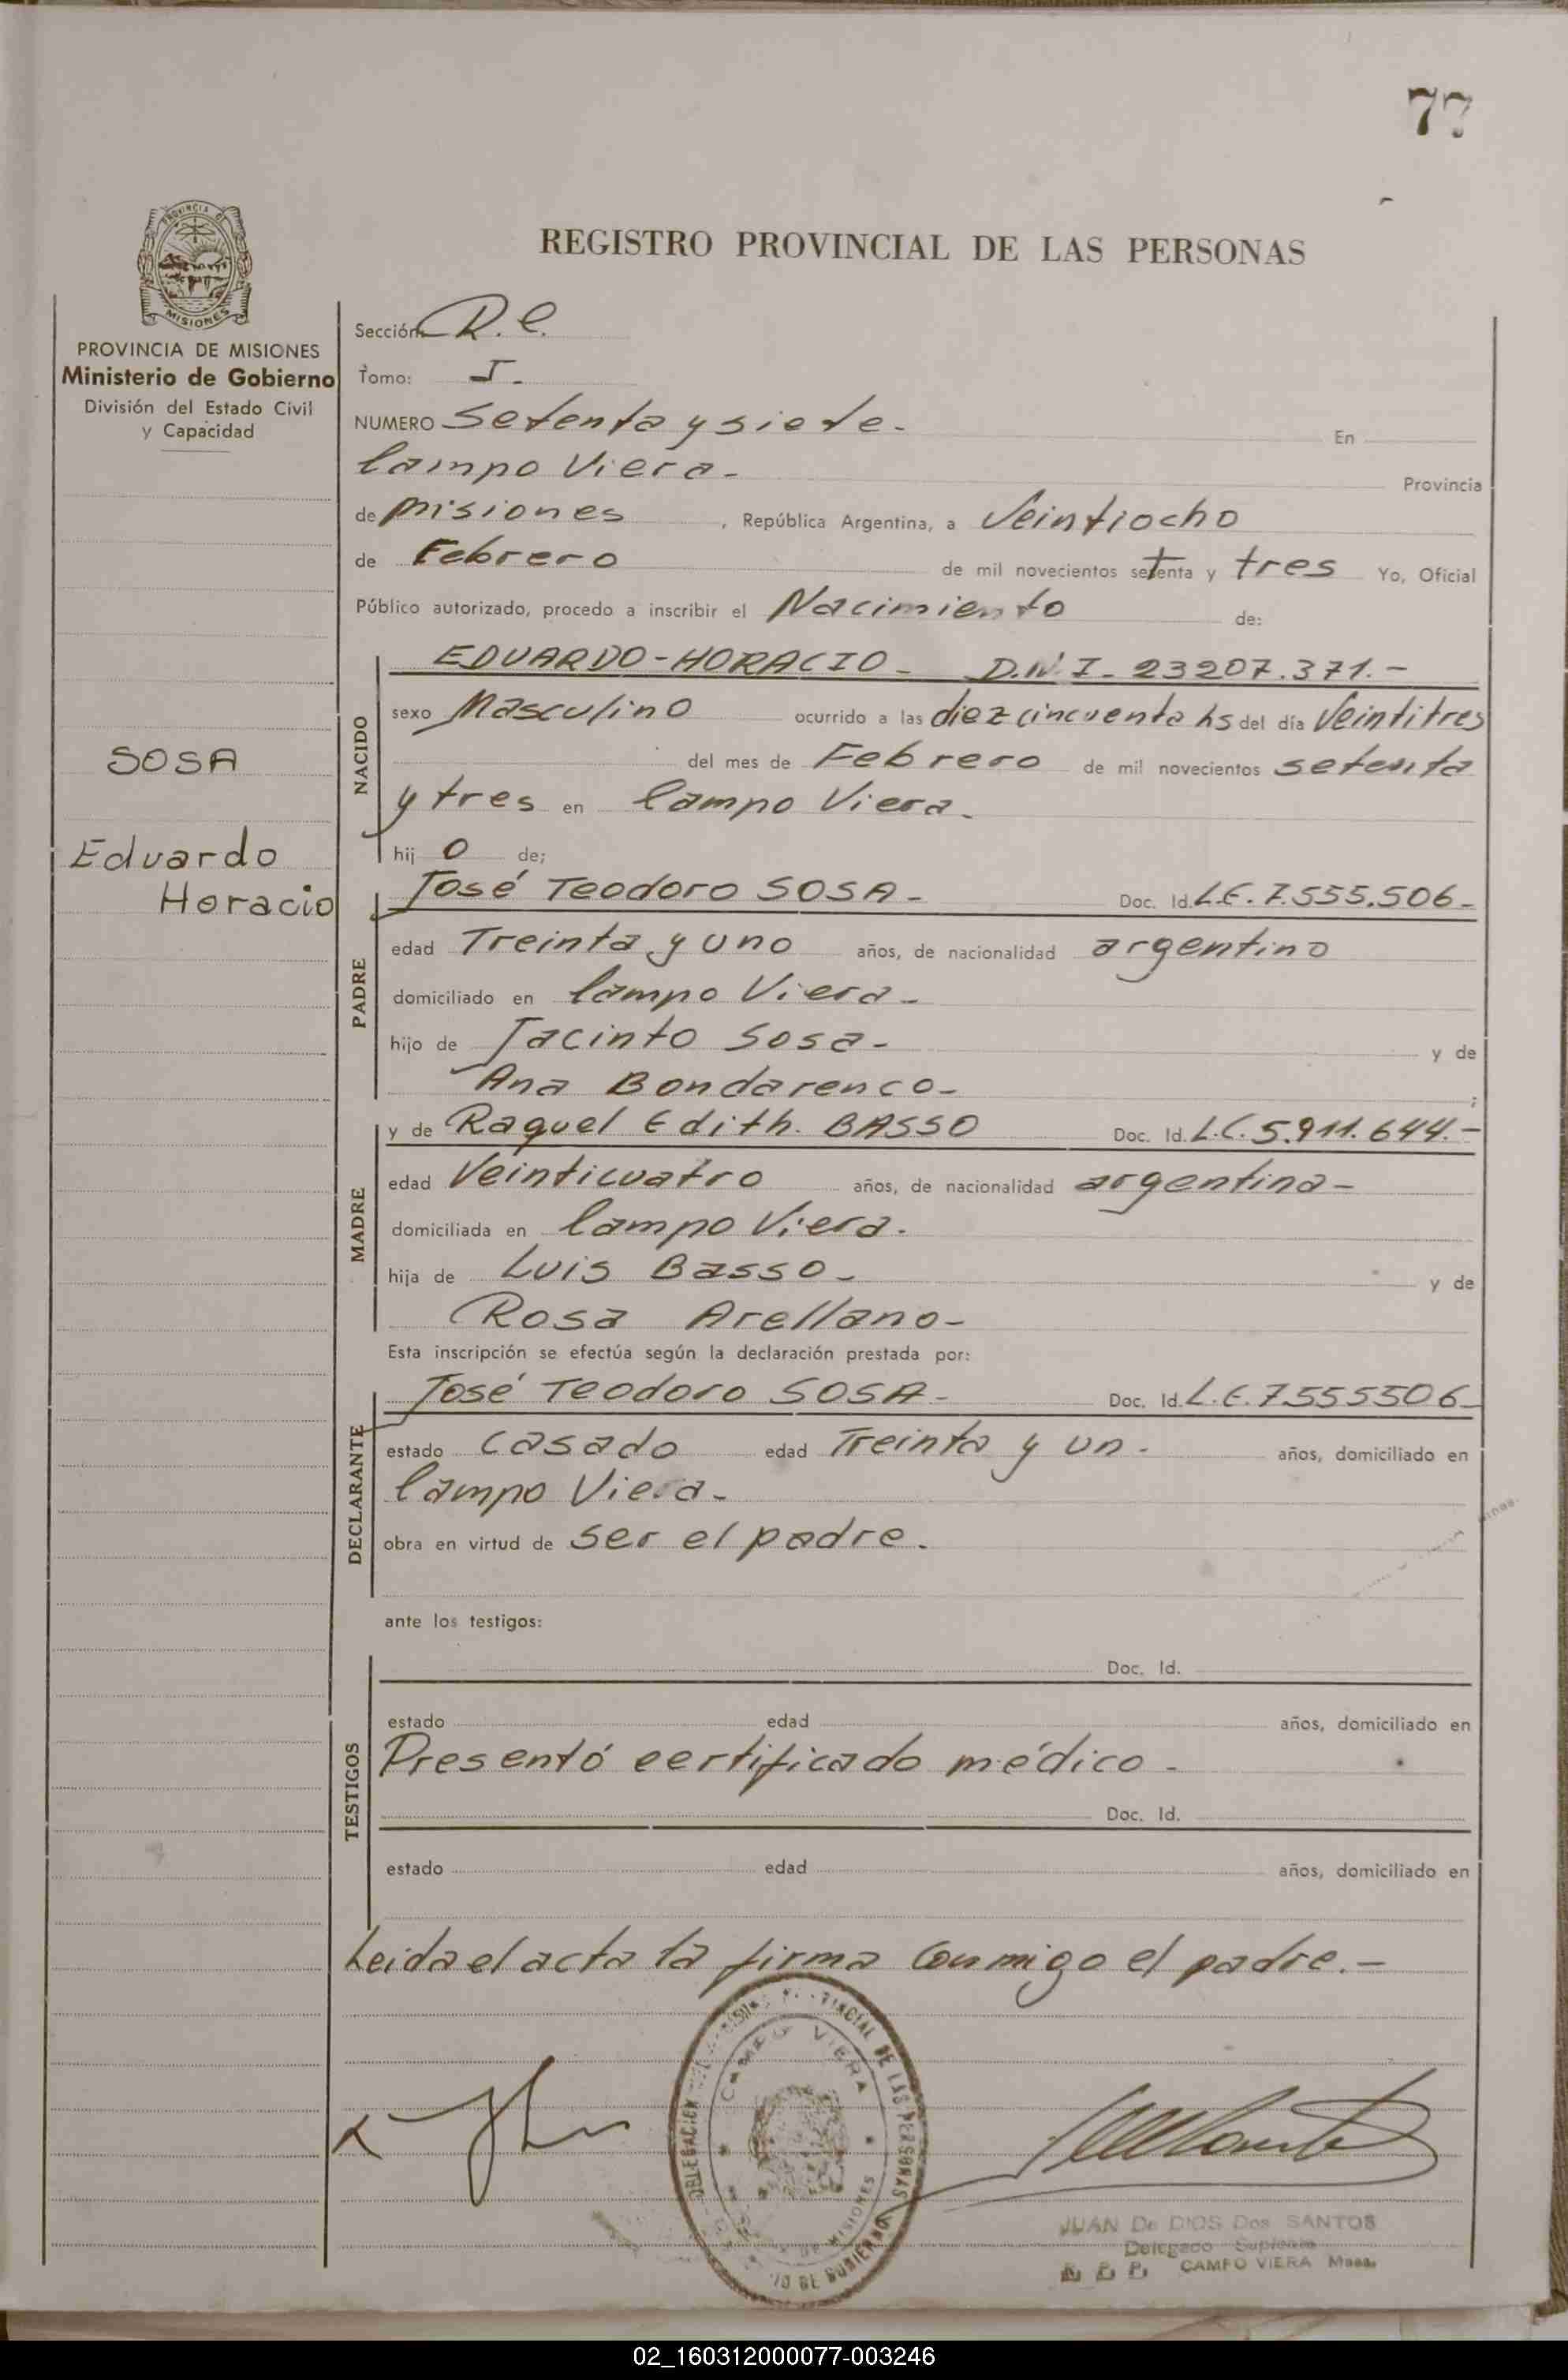 77
REGISTRO PROVINCIAL DE LAS PERSONAS
PROVINCIA DE MISIONES
Ministerio de Gobierno
División del Estado Civil
y Capacidad
SOSA
Eduardo
Horacio
Sección:
Tomo: I.
NUMERO Setenta y siete. En
Campo Viera. Provincia
de Misiones, República Argentina, a Veintiocho
de Febrero de mil novecientos setenta y tres Yo, Oficial
Público autorizado, procedo a inscribir el Nacimiento de:
NACIDO
EDUARDO-HORACIO- D.N.I- 23207.371.-
sexo Masculino ocurrido a las diez cincuenta hs del día Veintitres
del mes de Febrero de mil novecientos setenta
y tres en Campo Viera.
hij o de;
PADRE
José Teodoro SOSA- Doc. Id. L.E. 7.555.506-
edad Treinta y uno años, de nacionalidad argentino
domiciliado en Campo Viera-
hijo de Jacinto Sosa- y de
Ana Bondarenco- ;
MADRE
y de Raquel Edith. BASSO Doc. Id. L.C. 5.911.644.-
edad Veinticuatro años, de nacionalidad argentina-
domiciliada en Campo Viera.
hija de Luis Basso- y de
Rosa Arellano-
Esta inscripción se efectúa según la declaración prestada por:
DECLARANTE
José Teodoro SOSA- Doc. Id. L.E. 7555506-
estado casado edad Treinta y un- años, domiciliado en
Campo Viera-
obra en virtud de ser el padre.
ante los testigos:
TESTIGOS
Doc. Id.
estado edad años, domiciliado en
Presentó certificado médico-
Doc. Id.
estado edad años, domiciliado en
Leida el acta la firma Conmigo el padre.-
CAMPO VIERA
MISIONES
JUAN De DIOS Dos SANTOS
Delegado Suplente
CAMPO VIERA Mnes.
02_160312000077-003246